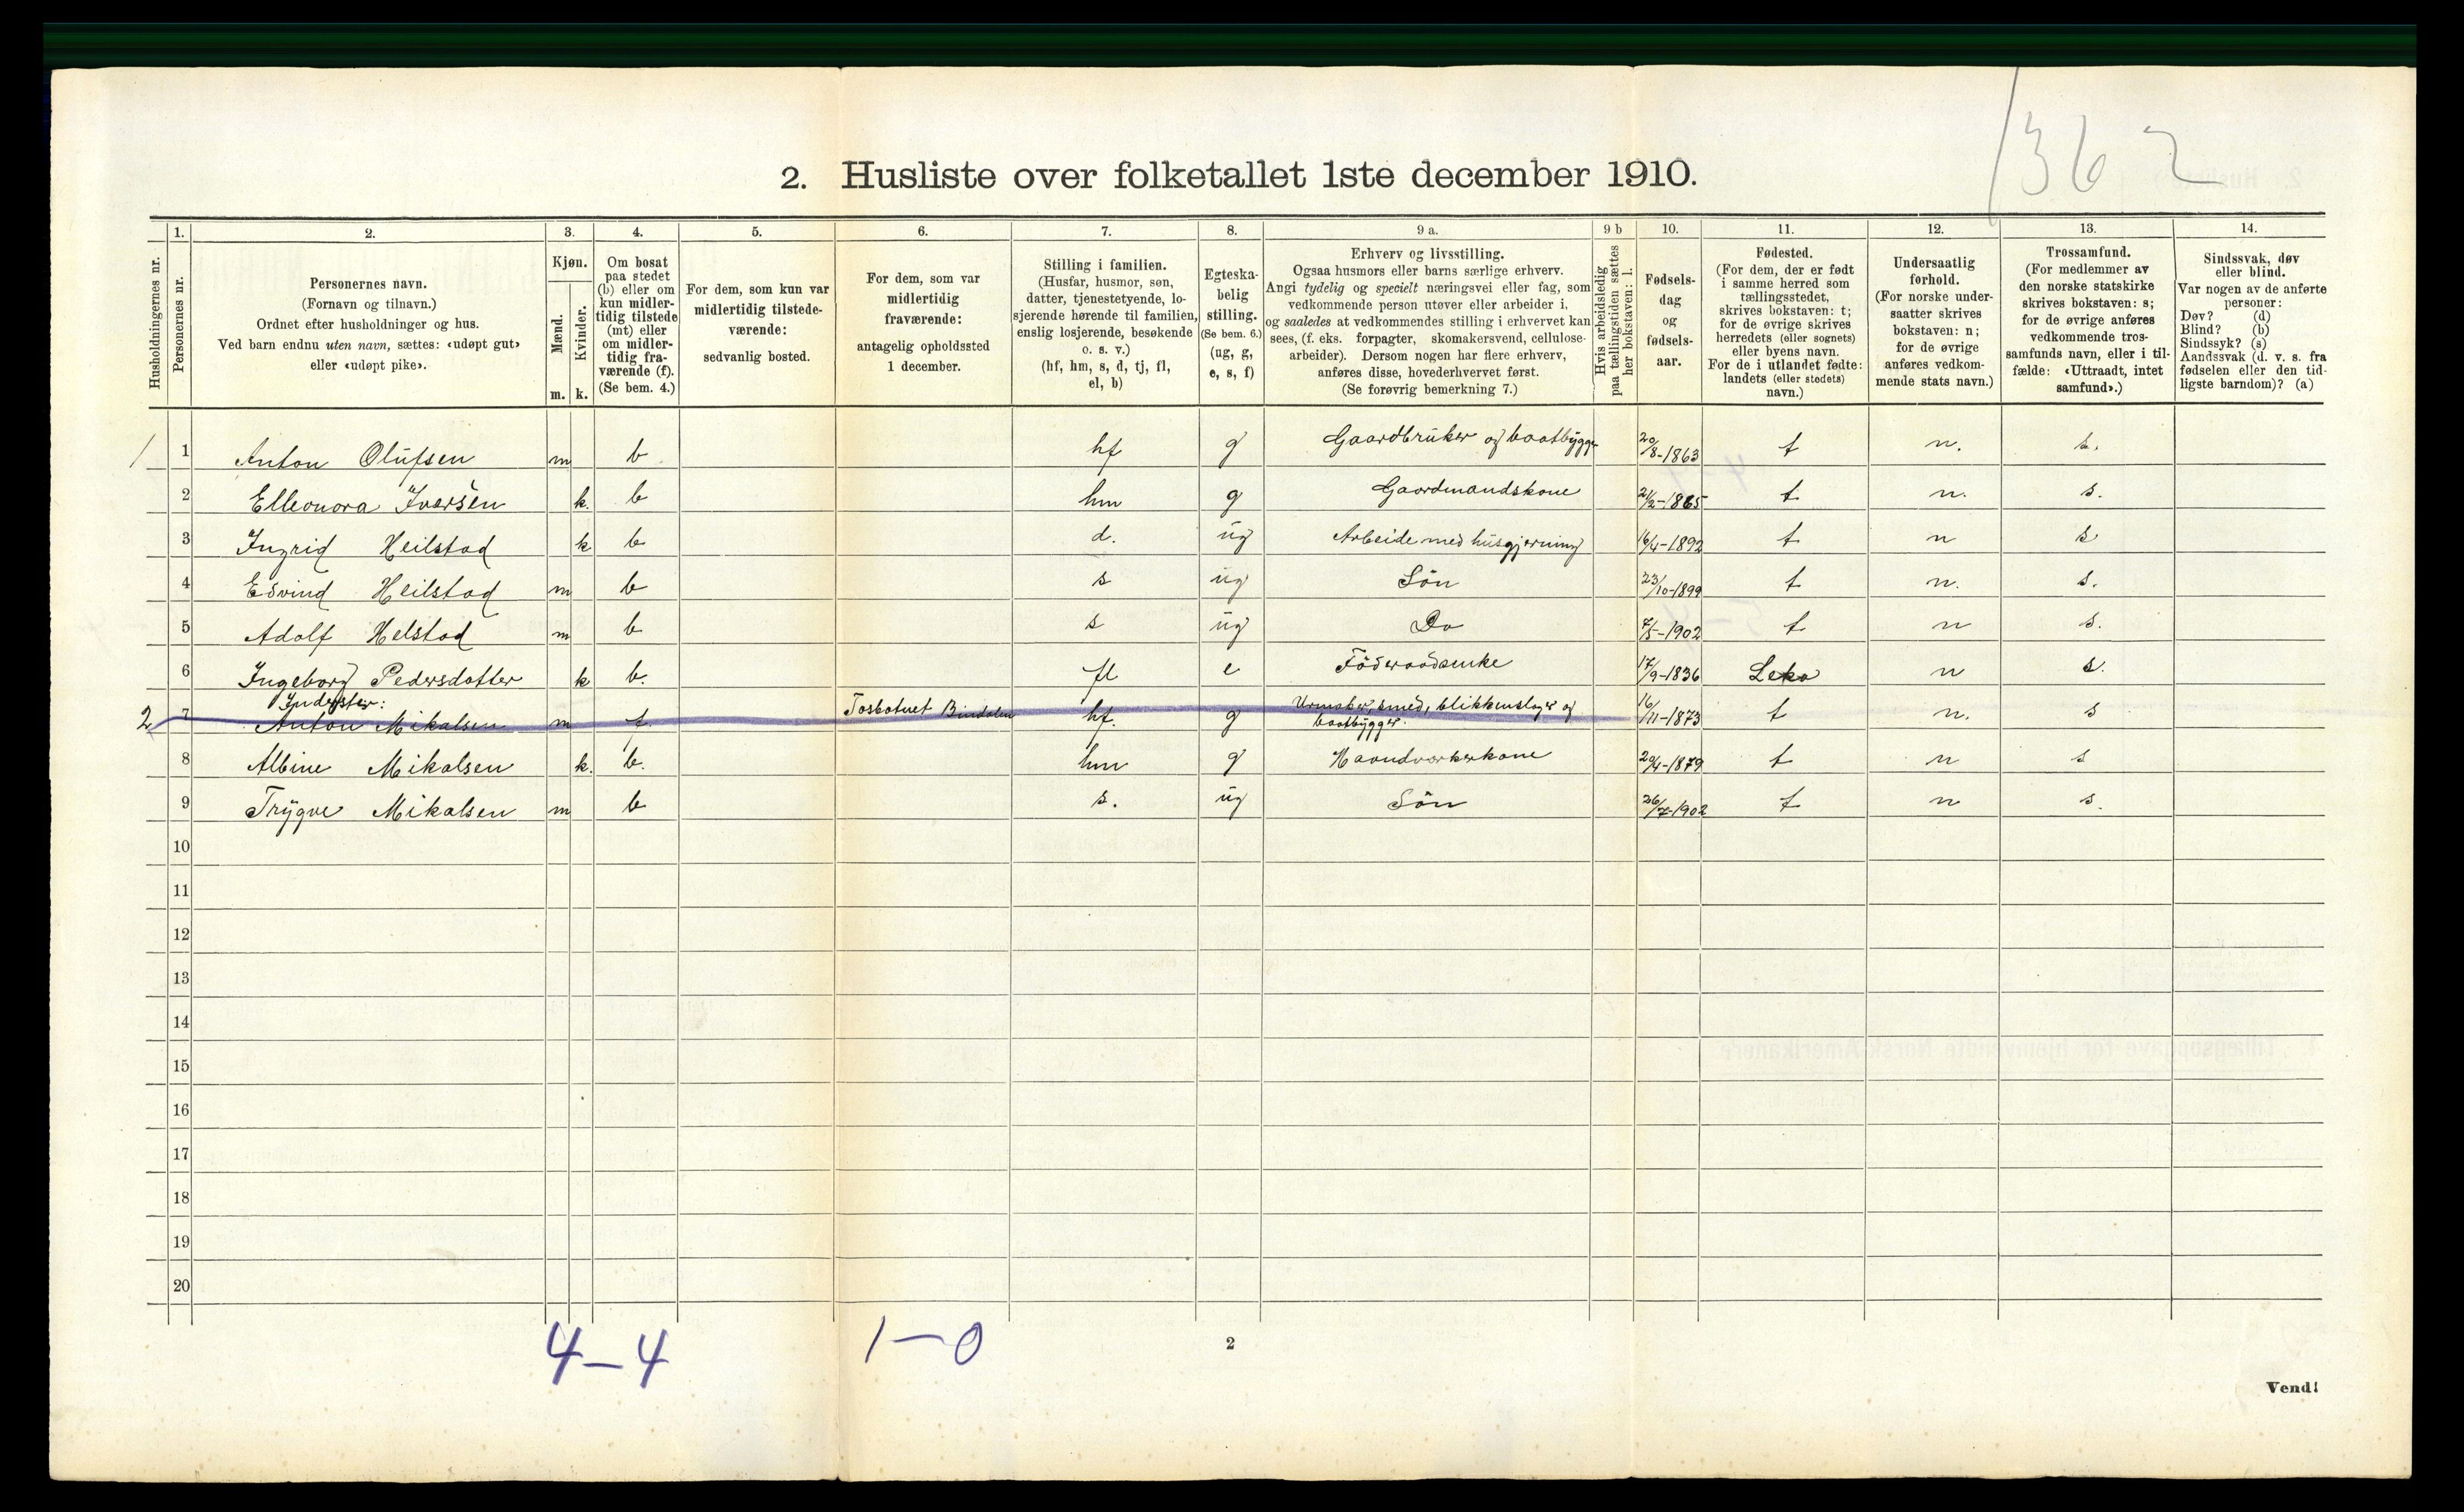 1362
2. Husliste over folketallet 1ste december 1910.
Husholdningernes nr.
1. Personernes nr.
2. Personernes navn.
(Fornavn og tilnavn.)
Ordnet efter husholdninger og hus.
Ved barn endnu uten navn, sættes: «udøpt gut»
eller «udøpt pike».
3. Kjøn.
Mænd. Kvinder.
m. k.
4. Om bosat
paa stedet
(b) eller om
kun midler-
tidig tilstede
(mt) eller
om midler-
tidig fra-
værende (f).
(Se bem. 4.)
5. For dem, som kun var
midlertidig tilstede-
værende:
sedvanlig bosted.
6. For dem, som var
midlertidig
fraværende:
antagelig opholdssted
1 december.
7. Stilling i familien.
(Husfar, husmor, søn,
datter, tjenestetyende, lo-
sjerende hørende til familien,
enslig losjerende, besøkende
o. s. v.)
(hf, hm, s, d, tj, fl,
el, b)
8. Egteska-
belig
stilling.
(Se bem. 6.)
(ug, g,
e, s, f)
9 a. Erhverv og livsstilling.
Ogsaa husmors eller barns særlige erhverv.
Angi tydelig og specielt næringsvei eller fag, som
vedkommende person utøver eller arbeider i,
og saaledes at vedkommendes stilling i erhvervet kan
sees, (f. eks. forpagter, skomakersvend, cellulose-
arbeider). Dersom nogen har flere erhverv,
anføres disse, hovederhvervet først.
(Se forøvrig bemerkning 7.)
9 b Hvis arbeidsledig
paa tællingstiden sættes
her bokstaven: l.
10. Fødsels-
dag
og
fødsels-
aar.
11. Fødested.
(For dem, der er født
i samme herred som
tællingsstedet,
skrives bokstaven: t;
for de øvrige skrives
herredets (eller sognets)
eller byens navn.
For de i utlandet fødte:
landets (eller stedets)
navn.)
12. Undersaatlig
forhold.
(For norske under-
saatter skrives
bokstaven: n;
for de øvrige
anføres vedkom-
mende stats navn.)
13. Trossamfund.
(For medlemmer av
den norske statskirke
skrives bokstaven: s;
for de øvrige anføres
vedkommende tros-
samfunds navn, eller i til-
fælde: «Uttraadt, intet
samfund».)
14. Sindssvak, døv
eller blind.
Var nogen av de anførte
personer:
Døv? (d)
Blind? (b)
Sindssyk? (s)
Aandssvak (d. v. s. fra
fødselen eller den tid-
ligste barndom)? (a)
1 1 Anton Olufsen m b hf g Gaardbruker og baatbygger 20/8-1863 t n. s.
2 Elleonora Iversen k. b hm g Gaardmandskone 21/2-1865 t n. s.
3 Ingrid Heilstad k b d. ug Arbeide med husgjerning 16/4-1892 t n s
4 Edvind Heilstad m b s ug Sön 23/10-1899 t n. s.
5 Adolf Helstad m b s ug Do 7/5-1902 t n s.
6 Ingeborg Pedersdatter k b. fl e Föderaadsenke 17/9-1836 Leka n s.
Inderster:
2 7 Anton Mikalsen m f. Tosbotnet Bindalen hf. g Urmaker, smed, blikkenslager og
baatbygger. 16/11-1873 t n. s
8 Albine Mikalsen k. b. hm g Haandværkerkone 29/4-1879 t n s
9 Trygve Mikalsen m b s. ug Sön 26/7-1902 t n s.
10
11
12
13
14
15
16
17
18
19
20
4-4 1-0
2
Vend!